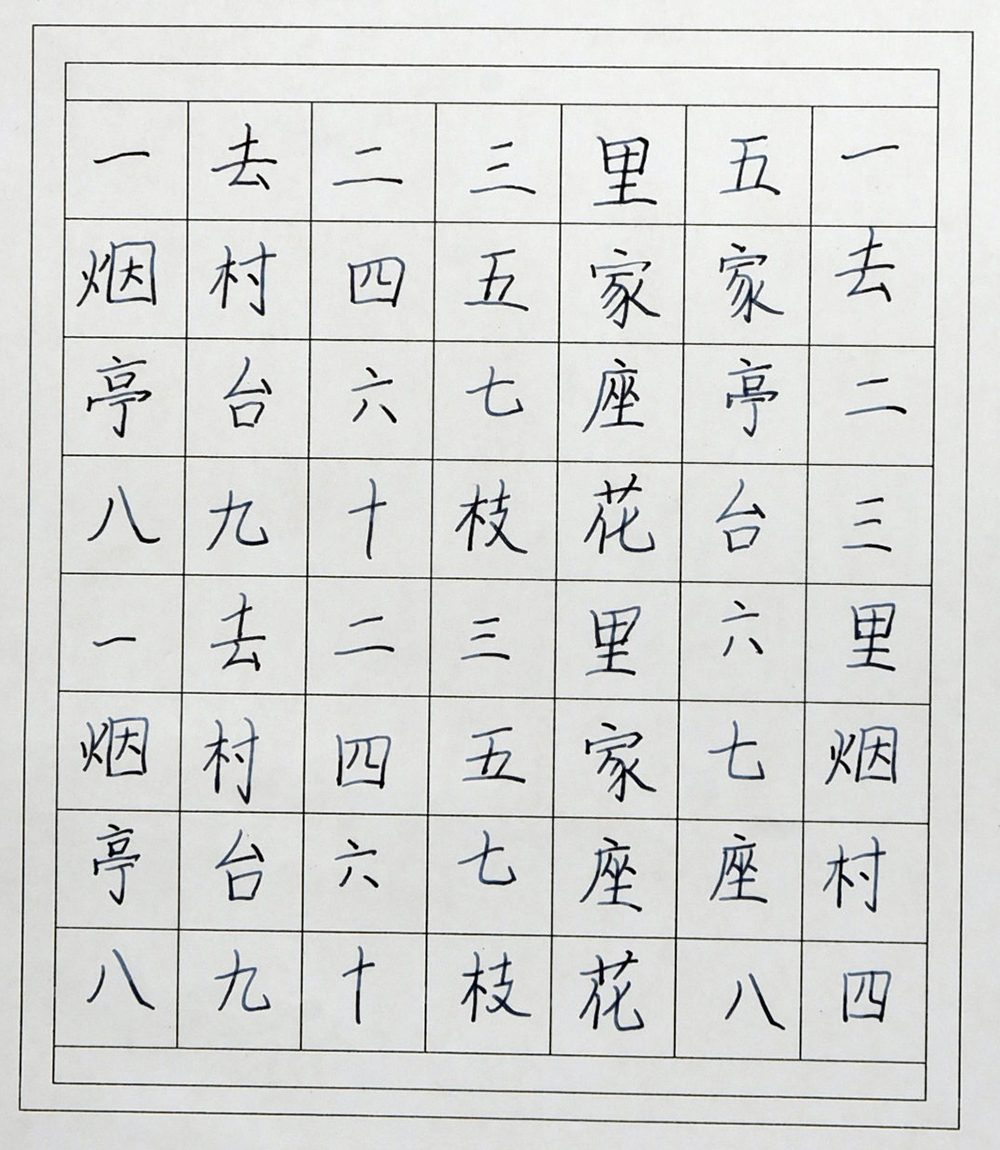 一去二三里
烟村四五家
亭台六七座
八九十枝花
一去二三里
烟村四五家
亭台六七座
八九十枝花
一去二三里烟村四
五家亭台六七座八